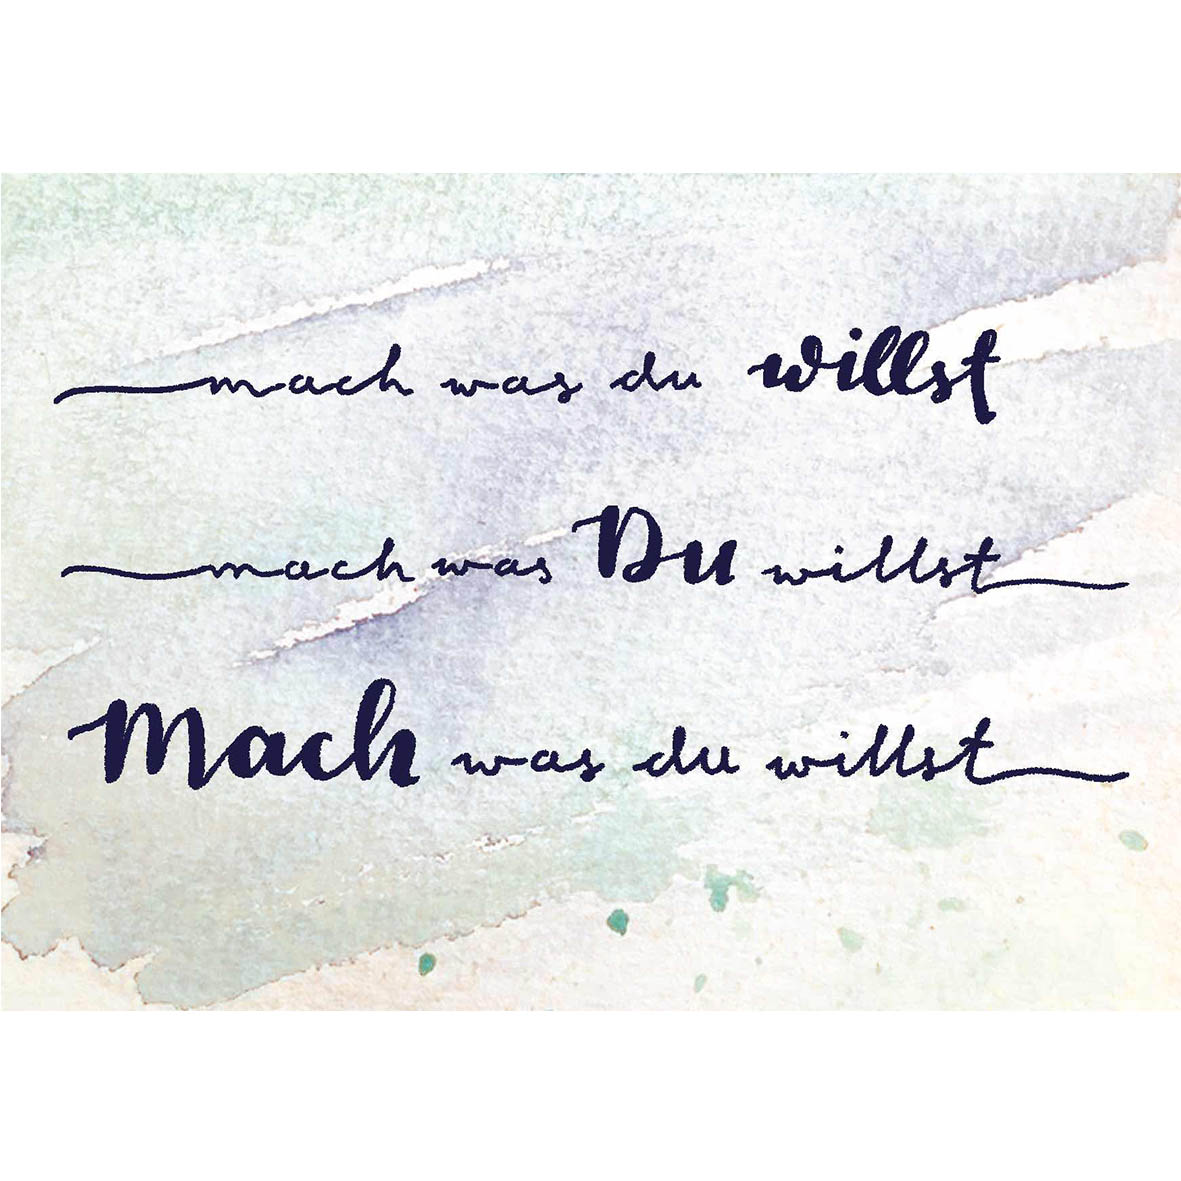 mach was du willst
mach was Du willst
Mach was du willst